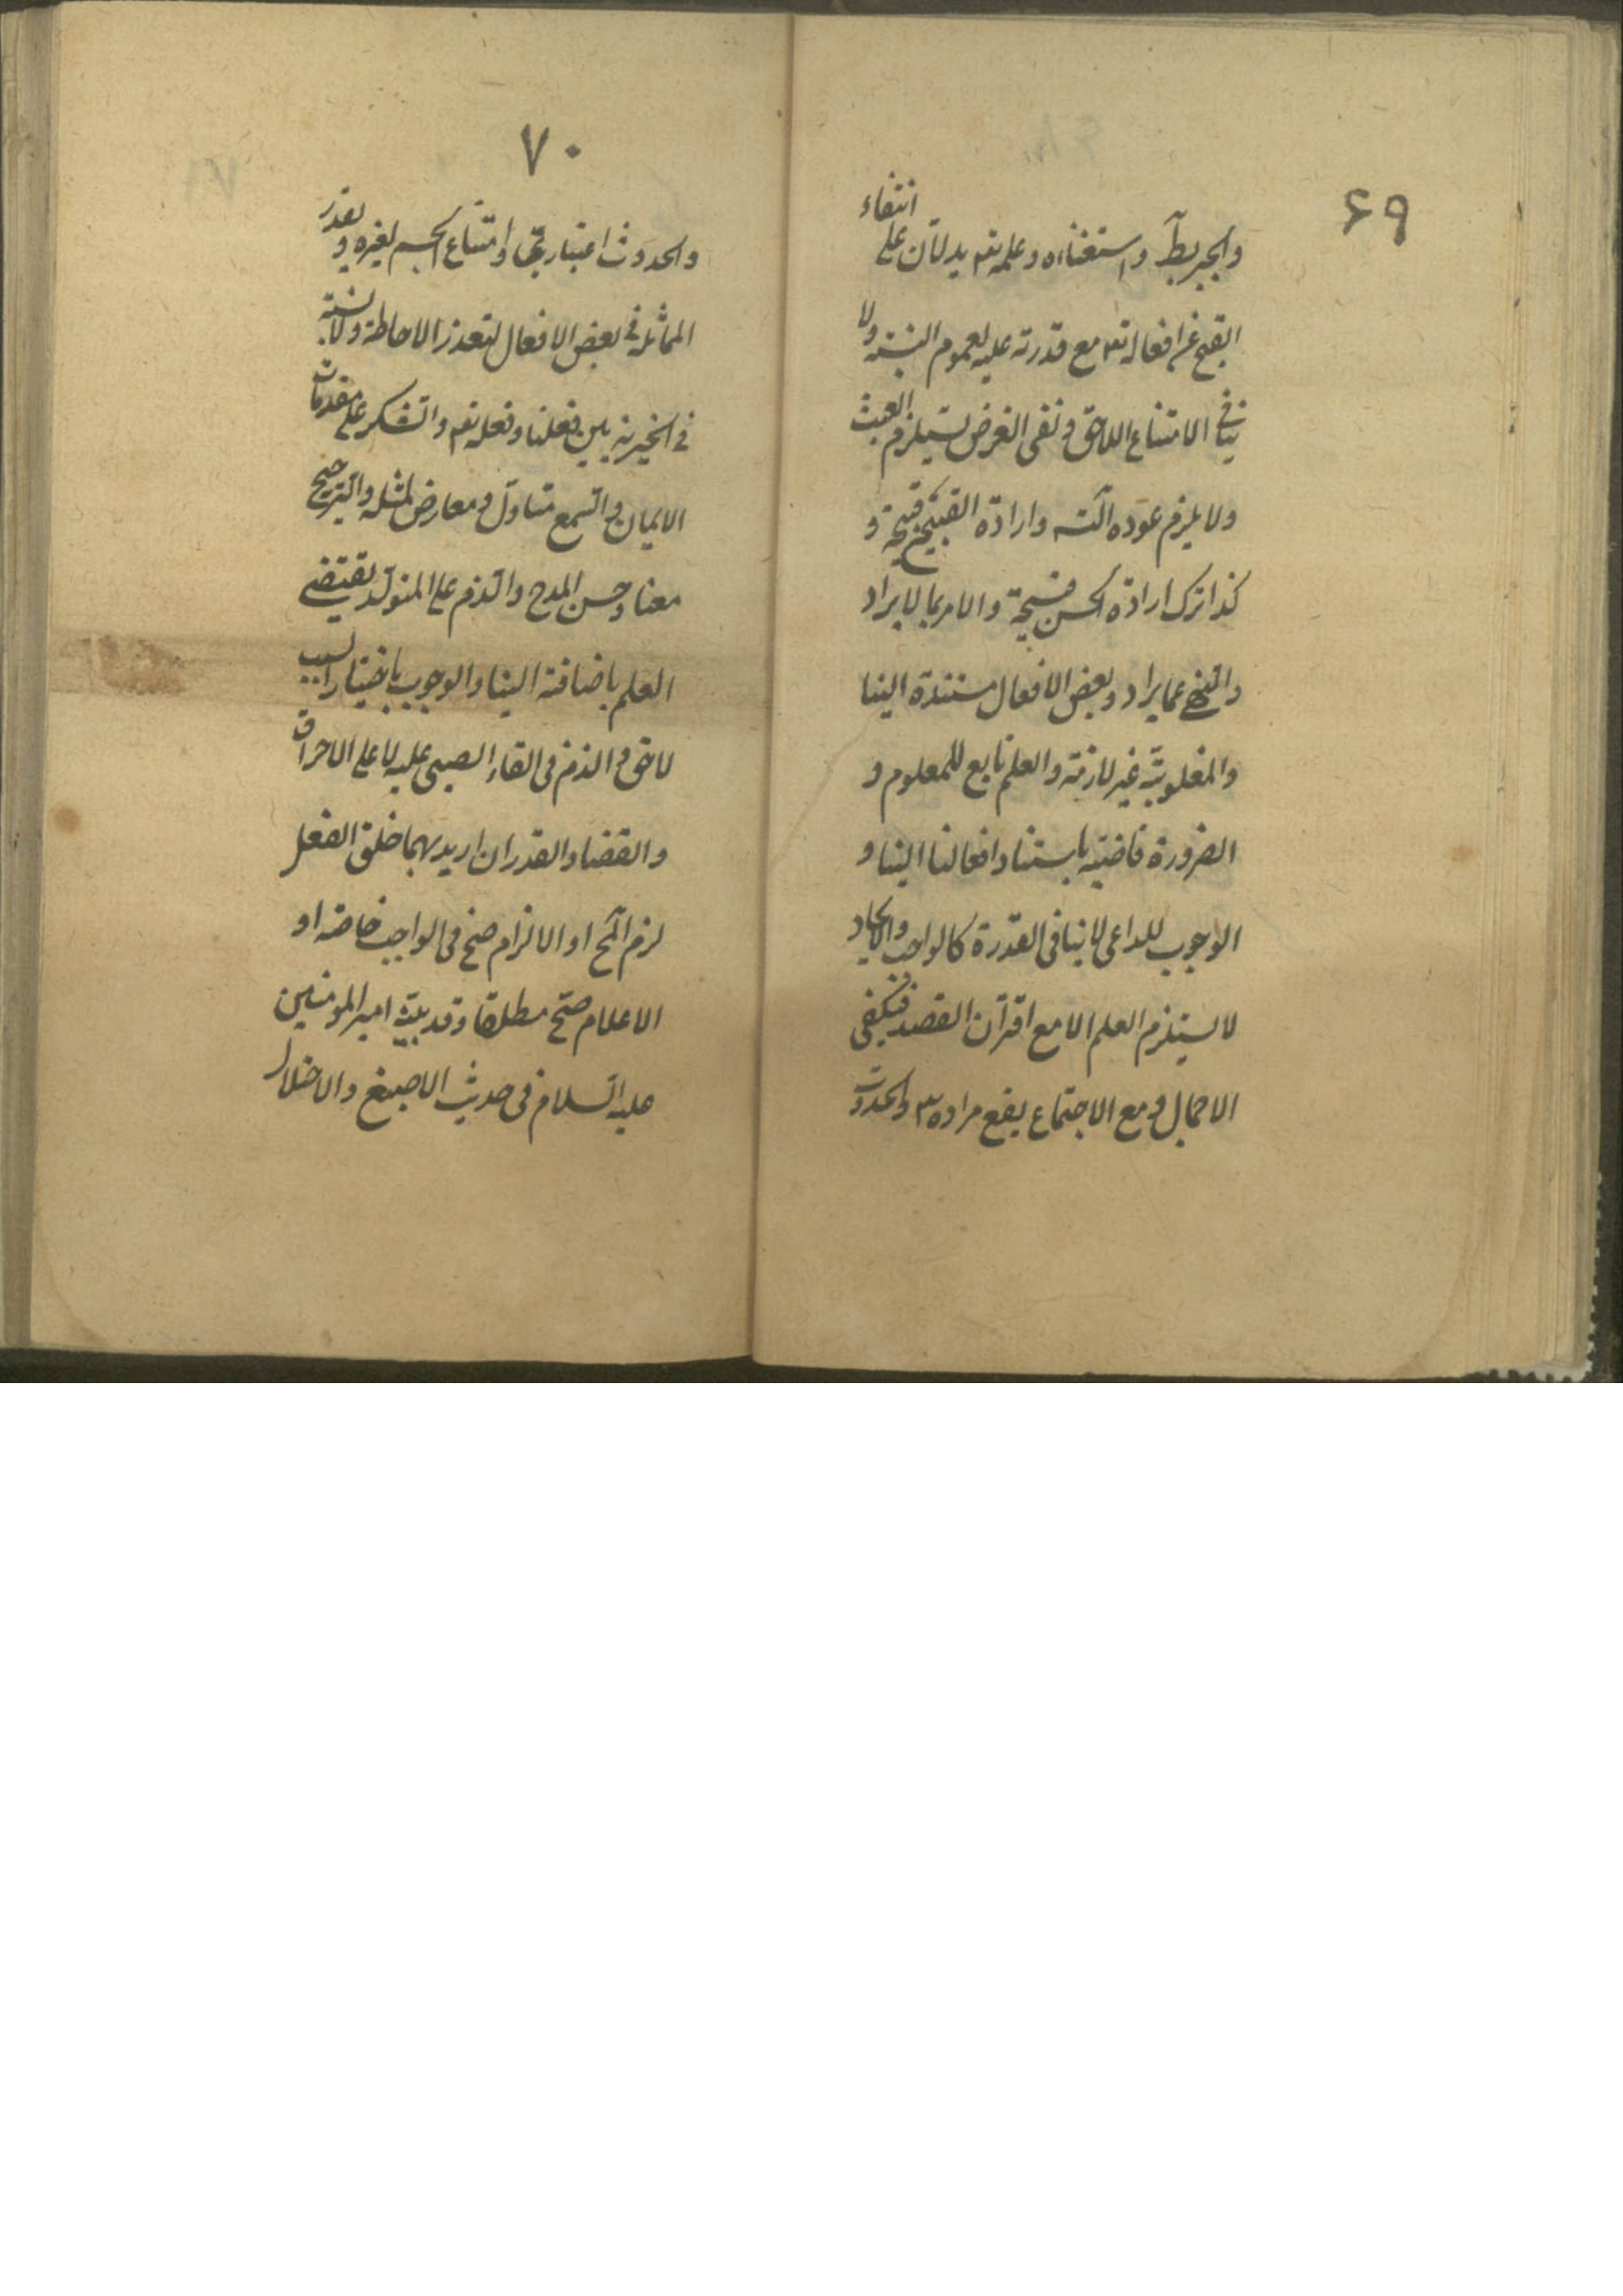 ۶۹
والجبر بط واستغناءه وعلمه تعه يدلان على انتفاء
القبح عن افعاله تعه مع قدرته عليه لعموم النسبة ولا
ينافى الامتناع اللاحق ونفى الغرض يستلزم العبث
ولا يلزم عوده اليه وارادة القبيح قبيحة و
كذا ترك ارادة الحسن قبيحة والامر بما لا يراد
والنهى عما يراد وبعض الافعال مستندة الينا
والمغلوبية غير لازمة والعلم تابع للمعلوم و
الضرورة قاضية باستناد افعالنا الينا و
الوجوب للداعى لا ينافى القدرة كالواجب والايجاد
لا يستلزم العلم الا مع اقتران القصد فيكفى
الاجمال ومع الاجتماع يقع مراده تعه والحدوث
٧٠
والحدوث اعتبارى وامتناع الجسم لغيره وتعذر
المماثلة فى بعض الافعال لتعذر الاحاطة ولا نسبة
فى الخيرية بين فعلنا وفعله تعه والشكر على مقدمات
الايمان والسمع متاول ومعارض بمثله والترجيح
معنا وحسن المدح والذم على المتولد يقتضى
العلم باضافته الينا والوجوب باختيار السبب
لاحق والذم فى القاء الصبى عليه لا على الاحراق
والقضا والقدر ان اريد بهما خلق الفعل
لزم المح او الالزام صح فى الواجب خاصة او
الاعلام صح مطلقا وقد بينه امير المومنين
عليه السلام فى حديث الاصبغ والاضلال